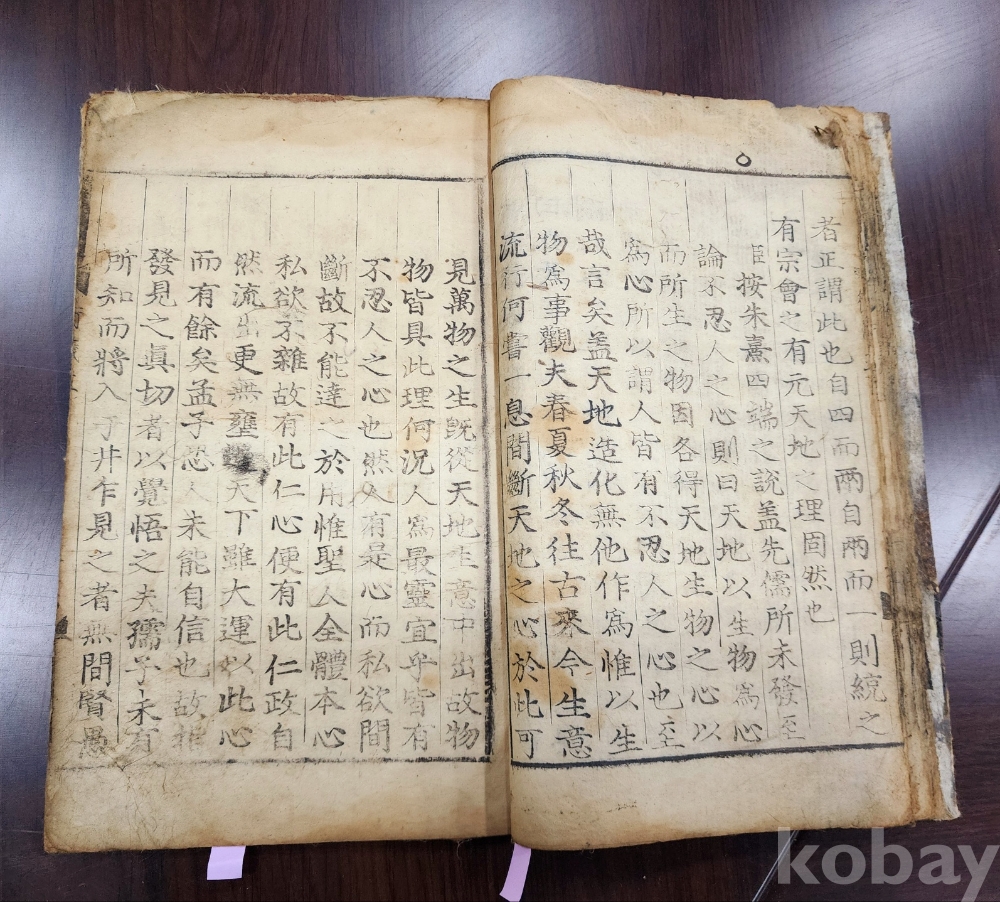 者正謂此也自四而兩自兩而一則統之
有宗會之有元天地之理固然也
臣按朱熹四端之說盖先儒所未發至
論不忍人之心則曰天地以生物爲心
而所生之物因各得天地生物之心以
爲心所以謂人皆有不忍人之心也至
哉言矣盖天地造化無他作爲惟以生
物爲事觀夫春夏秋冬往古來今生意
流行何嘗一息間斷天地之心於此可
見萬物之生旣從天地生意中出故物
物皆具此理何況人爲最靈宜乎皆有
不忍人之心也然人有是心而私欲間
斷故不能達之於用惟聖人全體本心
私欲不雜故有此仁心便有此仁政自
然流出更無壅天下雖大運以此心
而有餘矣孟子恐人未能自信也故指
發見之眞切者以覺悟之夫孺子未有
所知而將入于井乍見之者無間賢愚
kobay